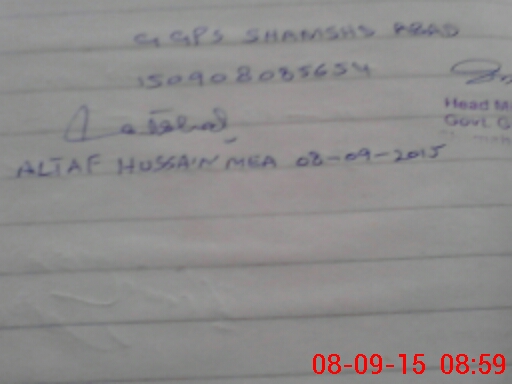 GGPS SHAMSHS ABAD
150908085654
Head M
Govt. G
ALTAF HUSSAIN MEA 08-09-2015
08-09-15 08:59